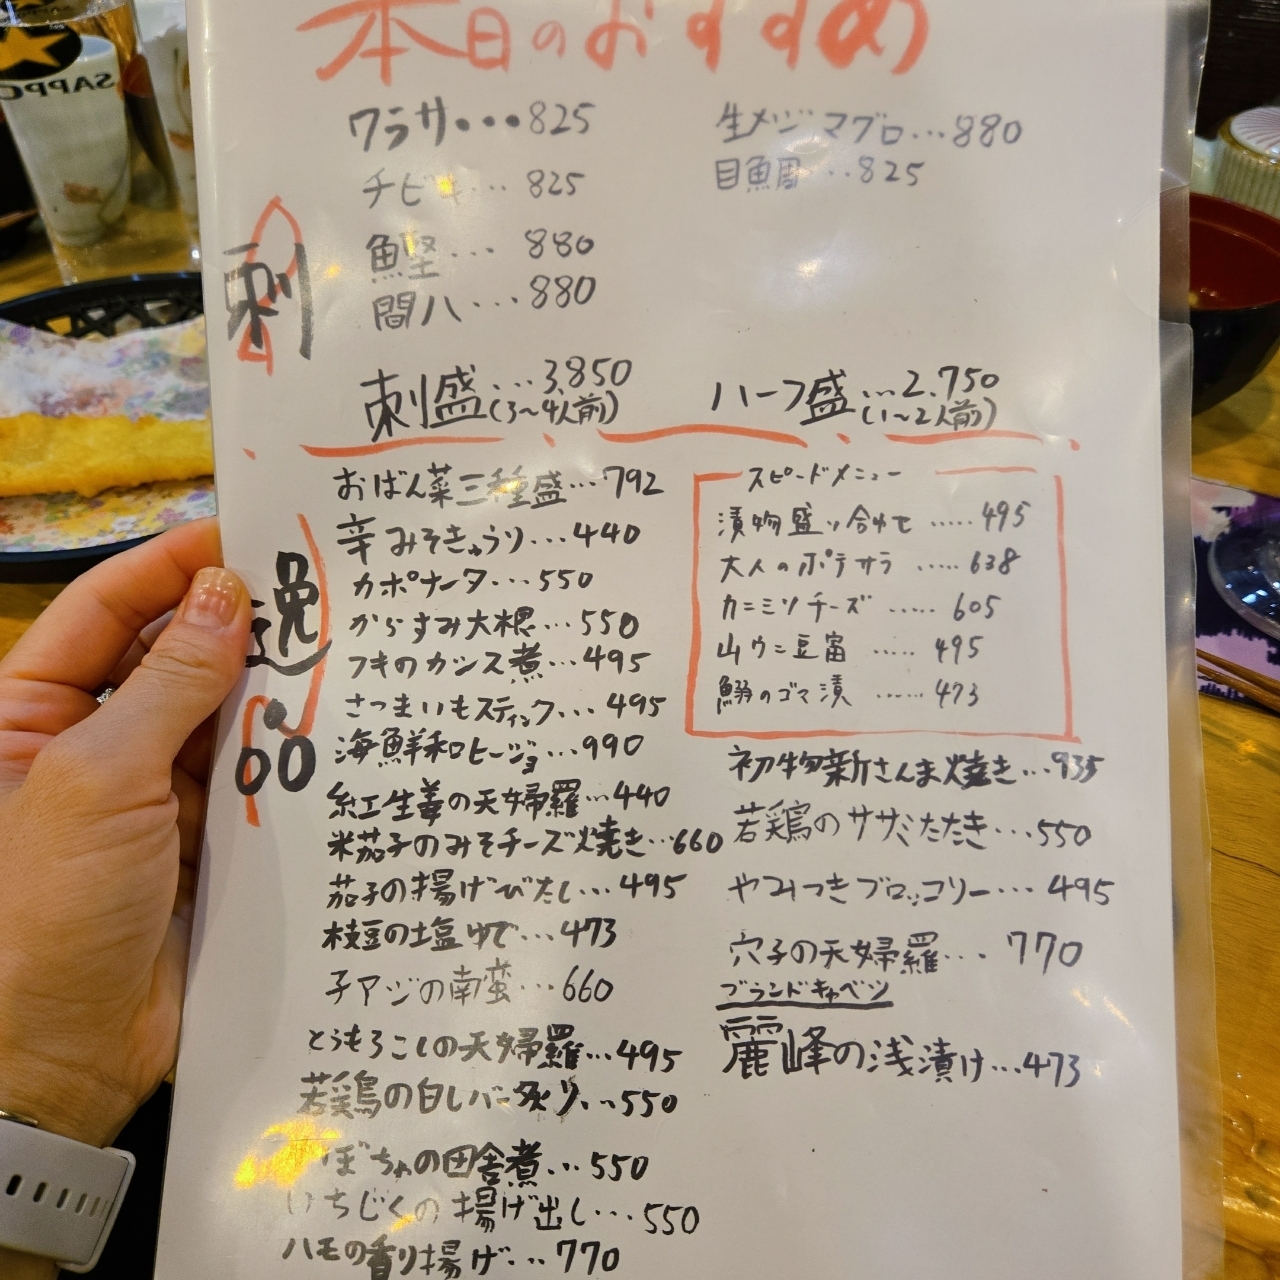 本日のおすすめ
刺
ワラサ・・・825
チビキ・・・825
鰹・・・880
間八・・・880
生メジマグロ・・・880
目鯛・・・825
刺盛・・・3,850
(3〜4人前)
ハーフ盛・・・2.750
(1〜2人前)
逸品
おばん菜三種盛・・・792
辛みそきゅうり・・・440
カポナータ・・・550
からすみ大根・・・550
フキのカンス煮・・・495
さつまいもスティック・・・495
海鮮和ヒージョ・・・990
紅生姜の天婦羅・・・440
米茄子のみそチーズ焼き・・・660
茄子の揚げびたし・・・495
枝豆の塩ゆで・・・473
子アジの南蛮・・・660
とうもろこしの天婦羅・・・495
若鶏の白レバー炙り・・・550
ぼちゃの田舎煮・・・550
いちじくの揚げ出し・・・550
ハモの香り揚げ・・・770
スピードメニュー
漬物盛り合わせ・・・・・495
大人のポテサラ・・・・・638
カニミソチーズ・・・・・605
山ウニ豆富・・・・・495
鰯のゴマ漬・・・・・・473
初物新さんま焼き・・・935
若鶏のササミたたき・・・550
やみつきブロッコリー・・・495
穴子の天婦羅・・・770
ブランドキャベツ
麗峰の浅漬け・・・473
SAPPO